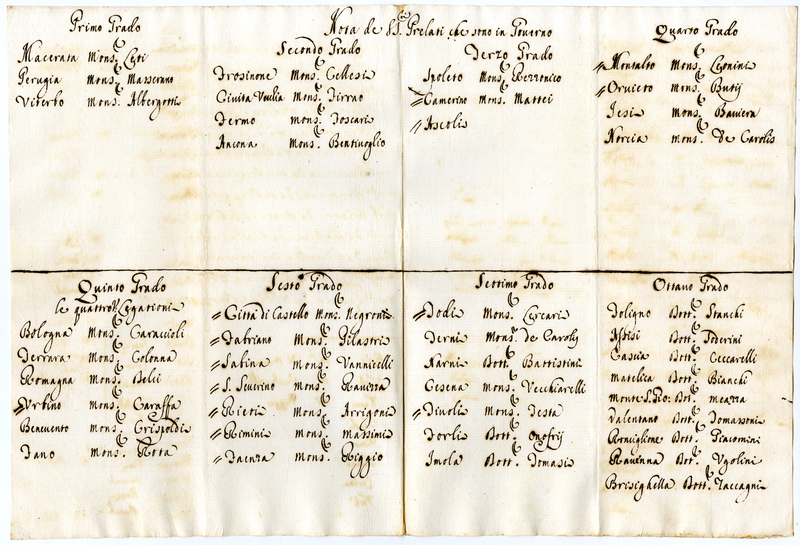 Nota de SS.ri Prelati che sono in Governo
Primo Grado
Macerata Mons.r
Perugia Mons.r Masserano
Viterbo Mons.r Albergotti
Secondo Grado
Frosinone Mons.r Cellesi
Civita Vecchia Mons.r
Fermo Mons.r Foscari
Ancona Mons.r Bentivoglio
Terzo Grado
Spoleto Mons.r Rezzonico
Camerino Mons.r Mattei
Ascoli
Quarto Grado
Montalto Mons.r Leonini
Orvieto Mons.r Butij
Jesi Mons.r Baviera
Norcia Mons.r De Carolis
Quinto Grado
le quattro Legationi
Bologna Mons.r Caraccioli
Ferrara Mons.r Colonna
Romagna Mons.r Belci
Urbino Mons.r Caraffa
Benevento Mons.r Crispoldi
Fano Mons.r Rota
Sesto Grado
Città di Castello Mons.r Negroni
Fabriano Mons.r Pilastri
Sabina Mons.r Vannicelli
S. Severino Mons.r Ravizza
Rieti Mons.r Arrigoni
Rimini Mons.r Massimi
Faenza Mons.r Riggio
Settimo Grado
Todi Mons.r Cercari
Terni Mons.r de Carolij
Narni Dott.r Battistini
Cesena Mons.r Vecchiarelli
Tivoli Mons.r Testa
Forlì Dott.r Onofrij
Imola Dott.r Tomasi
Ottavo Grado
Foligno Dott.r Stanchi
Assisi Dott.r Poderini
Cascia Dott.r Ceccarelli
Matelica Dott.r Bianchi
Monte S. Gio: Dott.r Meazza
Valentano Dott.r Tomassoni
Ronciglione Dott.r Giacomini
Ravenna Dott.r Ugolini
Brisighella Dott.r Zaccagni